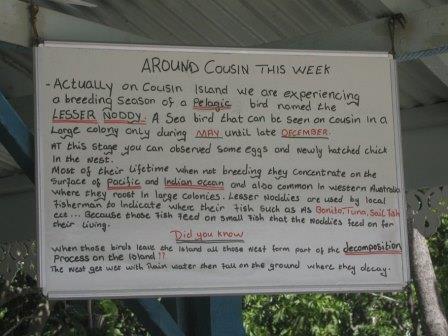 AROUND COUSIN THIS WEEK
- Actually on Cousin Island we are experiencing
a breeding season of a Pelagic bird named the
LESSER NODDY. A Sea bird that can be seen on cousin in a
Large colony only during MAY until late DECEMBER.
AT this stage you can observed some eggs and newly hatched chick
in the nest.
Most of their lifetime when not breeding they concentrate on the
surface of Pacific and Indian ocean and also common in western Australia
where they roost in large colonies. Lesser Noddies are used by local
fisherman to indicate where their fish such as Bonito, Tuna, Sail fish
ect... Because those fish feed on small fish that the Noddies feed on for
their living.
Did you know
when those birds leave the Island all those nest form part of the decomposition
Process on the Island!!
The nest get wet with Rain water then fall on the ground where they decay.